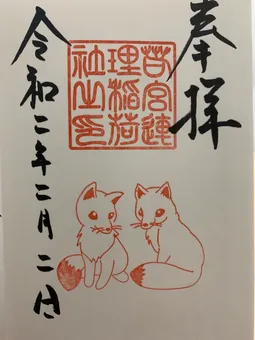 奉拝
苗宮連
理稲荷
社之印
令和二年二月二日